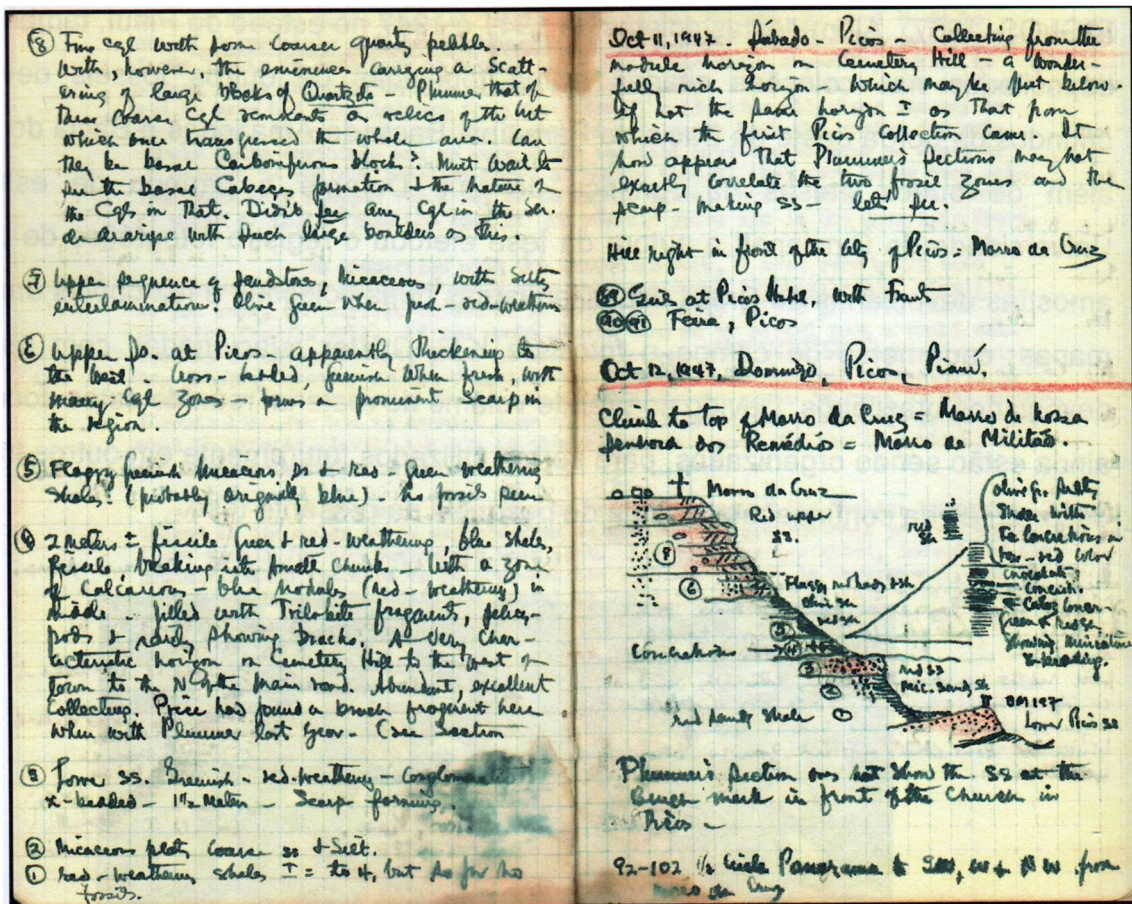 ⑧ Fine cgl with some coarser quartz pebbles.
With, however, the eminences carrying a Scatt-
ering of large blocks of Quartzite - Plummer that of
these coarse Cgl remnants or relics of the bit
which once transgressed the whole area. Can
they be basal Carboniferous block? Must wait to
see the basal Cabeças formation & the nature of
the Cgls in that. Didn't see any Cgl in the Ser.
de Araripe with such large boulders as this.
⑦ Upper sequence of sandstones, micaceous, with silty
interlamination. Olive green when fresh red-weathers
⑥ Upper ss. at Picos - apparently thickening to
the West. Cross-bedded, greenish when fresh, with
many Cgl zones - forms a prominent Scarp in
the region.
⑤ Flaggy greenish micaceous ss & red & green weathering
shales. (probably originally blue) - no fossils seen
④ 2 meters ± fissile green & red-weathering, blue shales,
fissile breaking into small chunks - with a zone
of Calcareous - blue nodules (red-weathering) in
middle - filled with Trilobite fragments, pelecy-
pods & rarely showing brachs. A very char-
acteristic horizon on Cemetery Hill to the west of
town to the N of the main road. Abundant, excellent
Collecting. Price had found a brach fragment here
when with Plummer last year - (see Section
③ Lower ss. Greenish - red-weathering - conglomeratic
x-bedded - 1½ meters - Scarp forming.
② Micaceous platy coarse ss & Silt.
① red-weathering shales I = to 4, but so far no
fossils.
Oct 11, 1947 Sábado - Picos - Collecting from the
nodule horizon on Cemetery Hill - a wonder-
fully rich horizon - which may be just below.
if not the same horizon I as that from
which the first Picos Collection came. It
now appears that Plummer's sections may not
exactly correlate the two fossil zones and the
scarp-making ss - let's see.
Hill right in front of the city of Picos = Morro da Cruz
89 Girls at Picos Hotel, with Fruit
90 91 Feira, Picos
Oct 12, 1947, Domingo, Picos, Piauí.
Climb to top of Morro da Cruz = Morro de Nossa
Senhora dos Remédios = Morro de Militão.
Morro da Cruz
Red upper
ss.
red
sh
olive gr. silty
Shale with
Fe concretions in
red color
⑧
⑥
Flaggy
olive sh
red sh
Concretions
⑤
④
③
②
①
red ss
mic. sandy sh
red sandy shale
BM 197
Lower Picos ss
Plummer's section does not show the SS at the
Bench mark in front of the Church in
Picos -
92-102 ½ circle Panorama to SW, W & NW from
Morro da Cruz